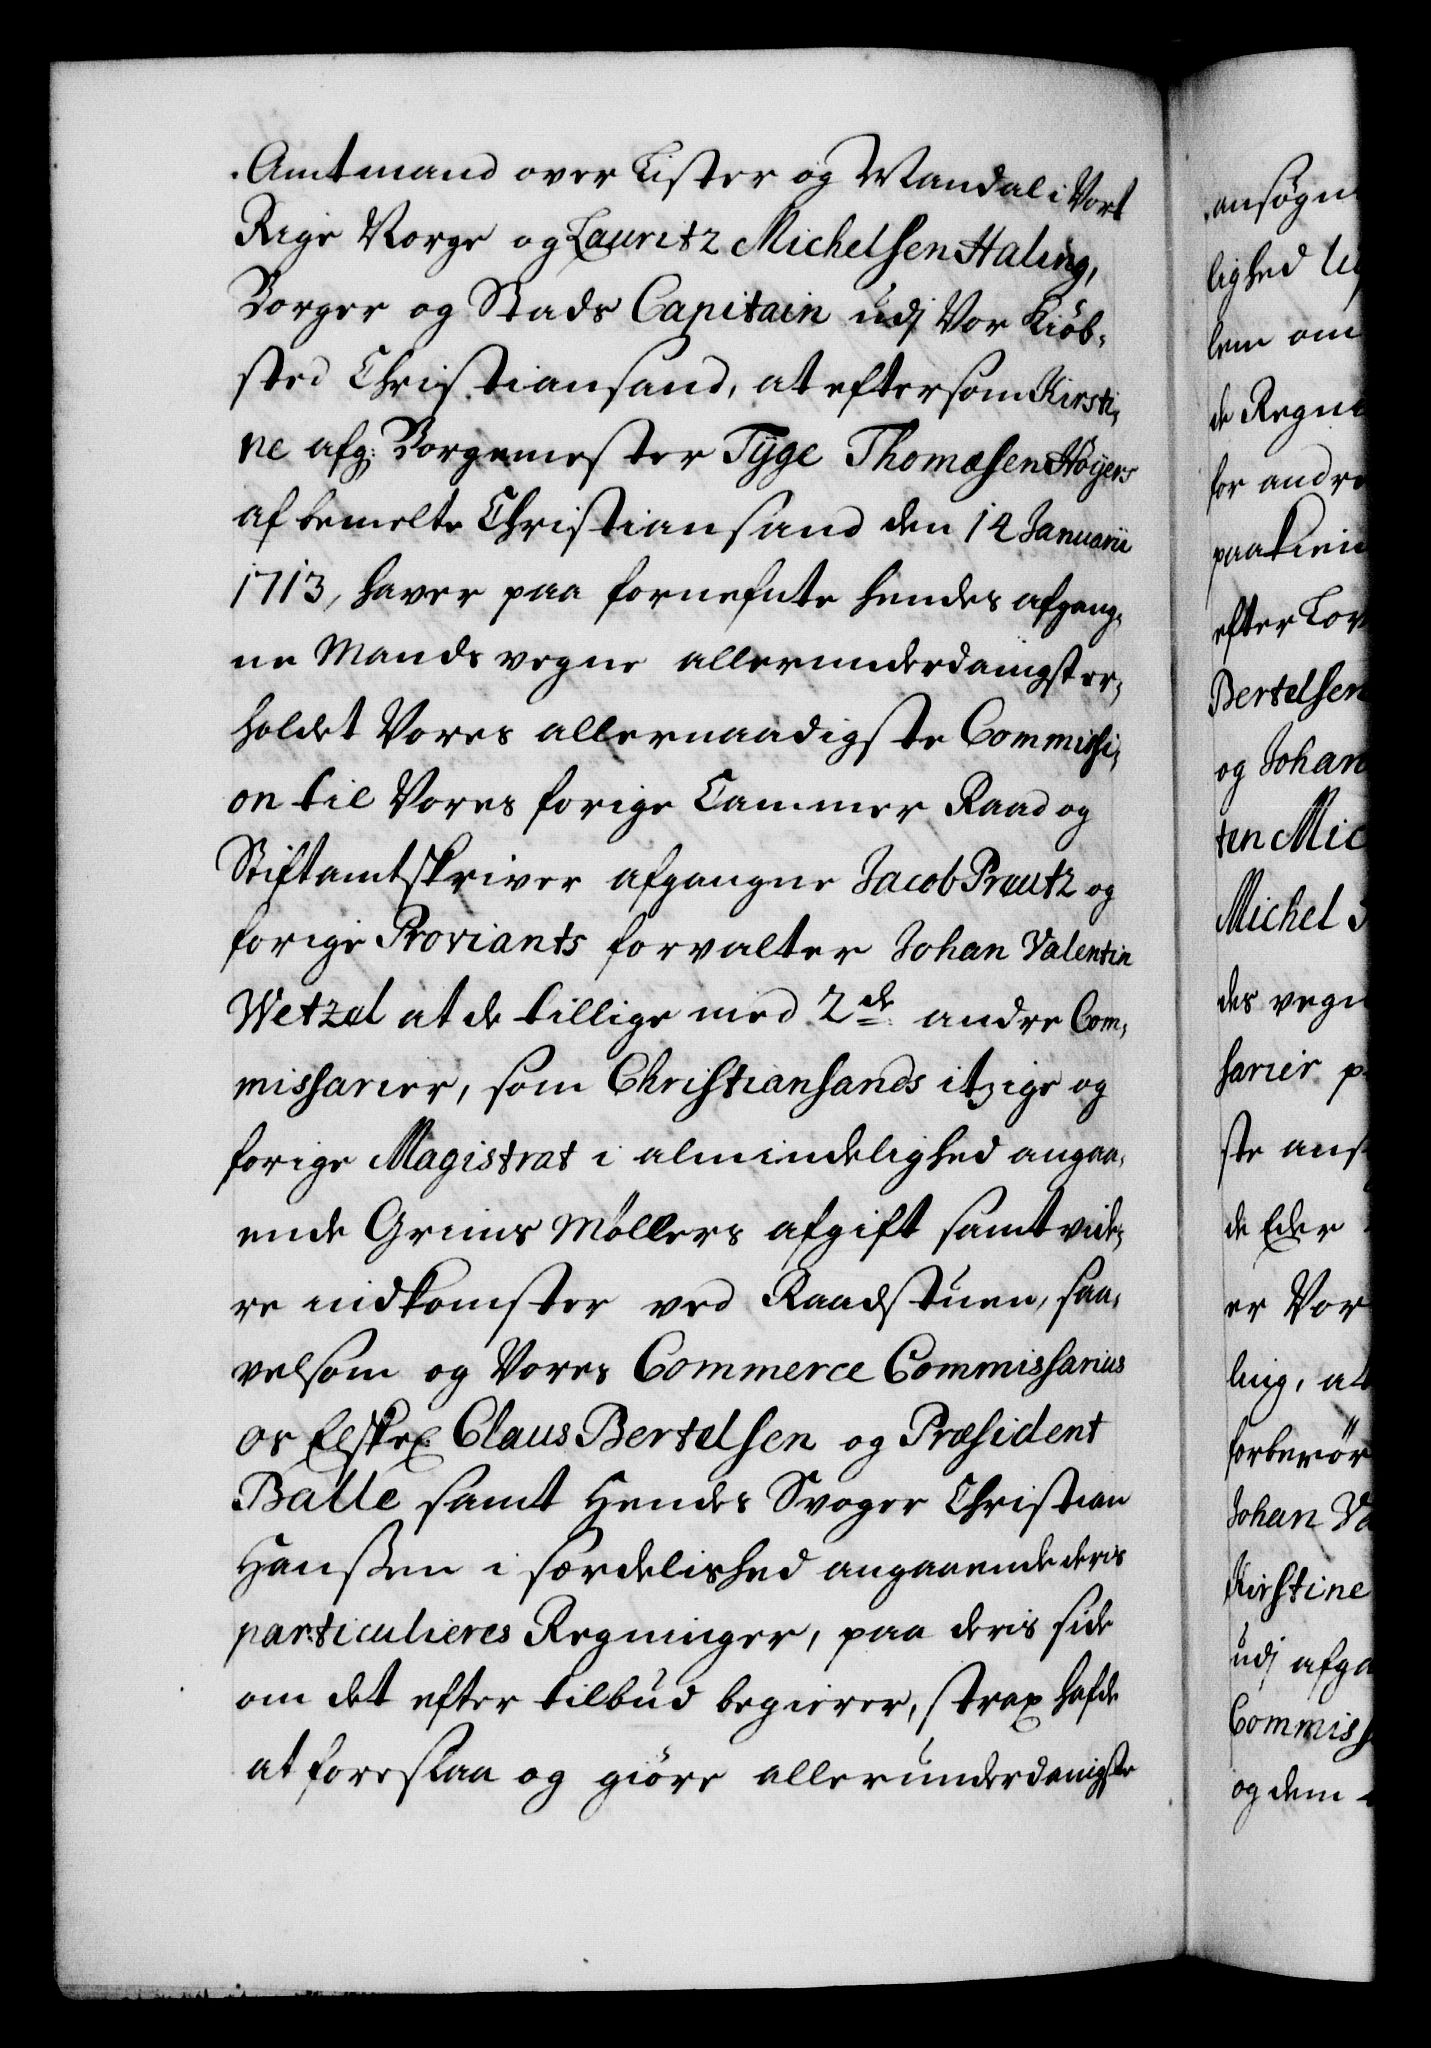 Amtmand over Lister og Mandal i Vort
Rige Norge og Lauritz Michelsen Haling,
Borger og Stads Capitain udj Vor Kiöb-
sted Christiansand, at eftersom Kirsti-
ne afg: Borgemester Tÿge Thomæsen Höÿers
af bemelte Christiansand den 14 Januarii
1713, haver paa fornefnte hendes afgang-
ne Mands vegne allerunderdanigst er-
holdet Vores allernaadigste Commissi-
on til Vores forige Cammer Raad og
Stiftamtskriver afgangne Jacob Preutz og
forige Proviants forvalter Johan Valentin
Wetzel at de tillige med 2de andre Com-
missarier, som Christiansands itzige og
forige Magistrat i almindelighed angaa-
ende Grims Møllers afgift samt vide-
re indkomster ved Raadstuen, saa-
velsom og Vores Commerce Commissarius
os Elskel: Claus Bertelsen og Præsident
Balle samt Hendes Svoger Christian
Hanssen i særdelished angaaende deris
particulieres Regninger, paa deris side
om det efter tilbud begierer, strax hafde
at foreslaa og giöre allerunderdanigste
ansøgn
lighed
lem om
de Regni
for andre
paa
efter Lov
Bertelsen
og Johan
ten Mic
Michel
des vegn
sarier p
ste ans
de Eder
er Vor
ling, at
forberör
Johan Va
Kirstine
udj afga
Commiss
og dem